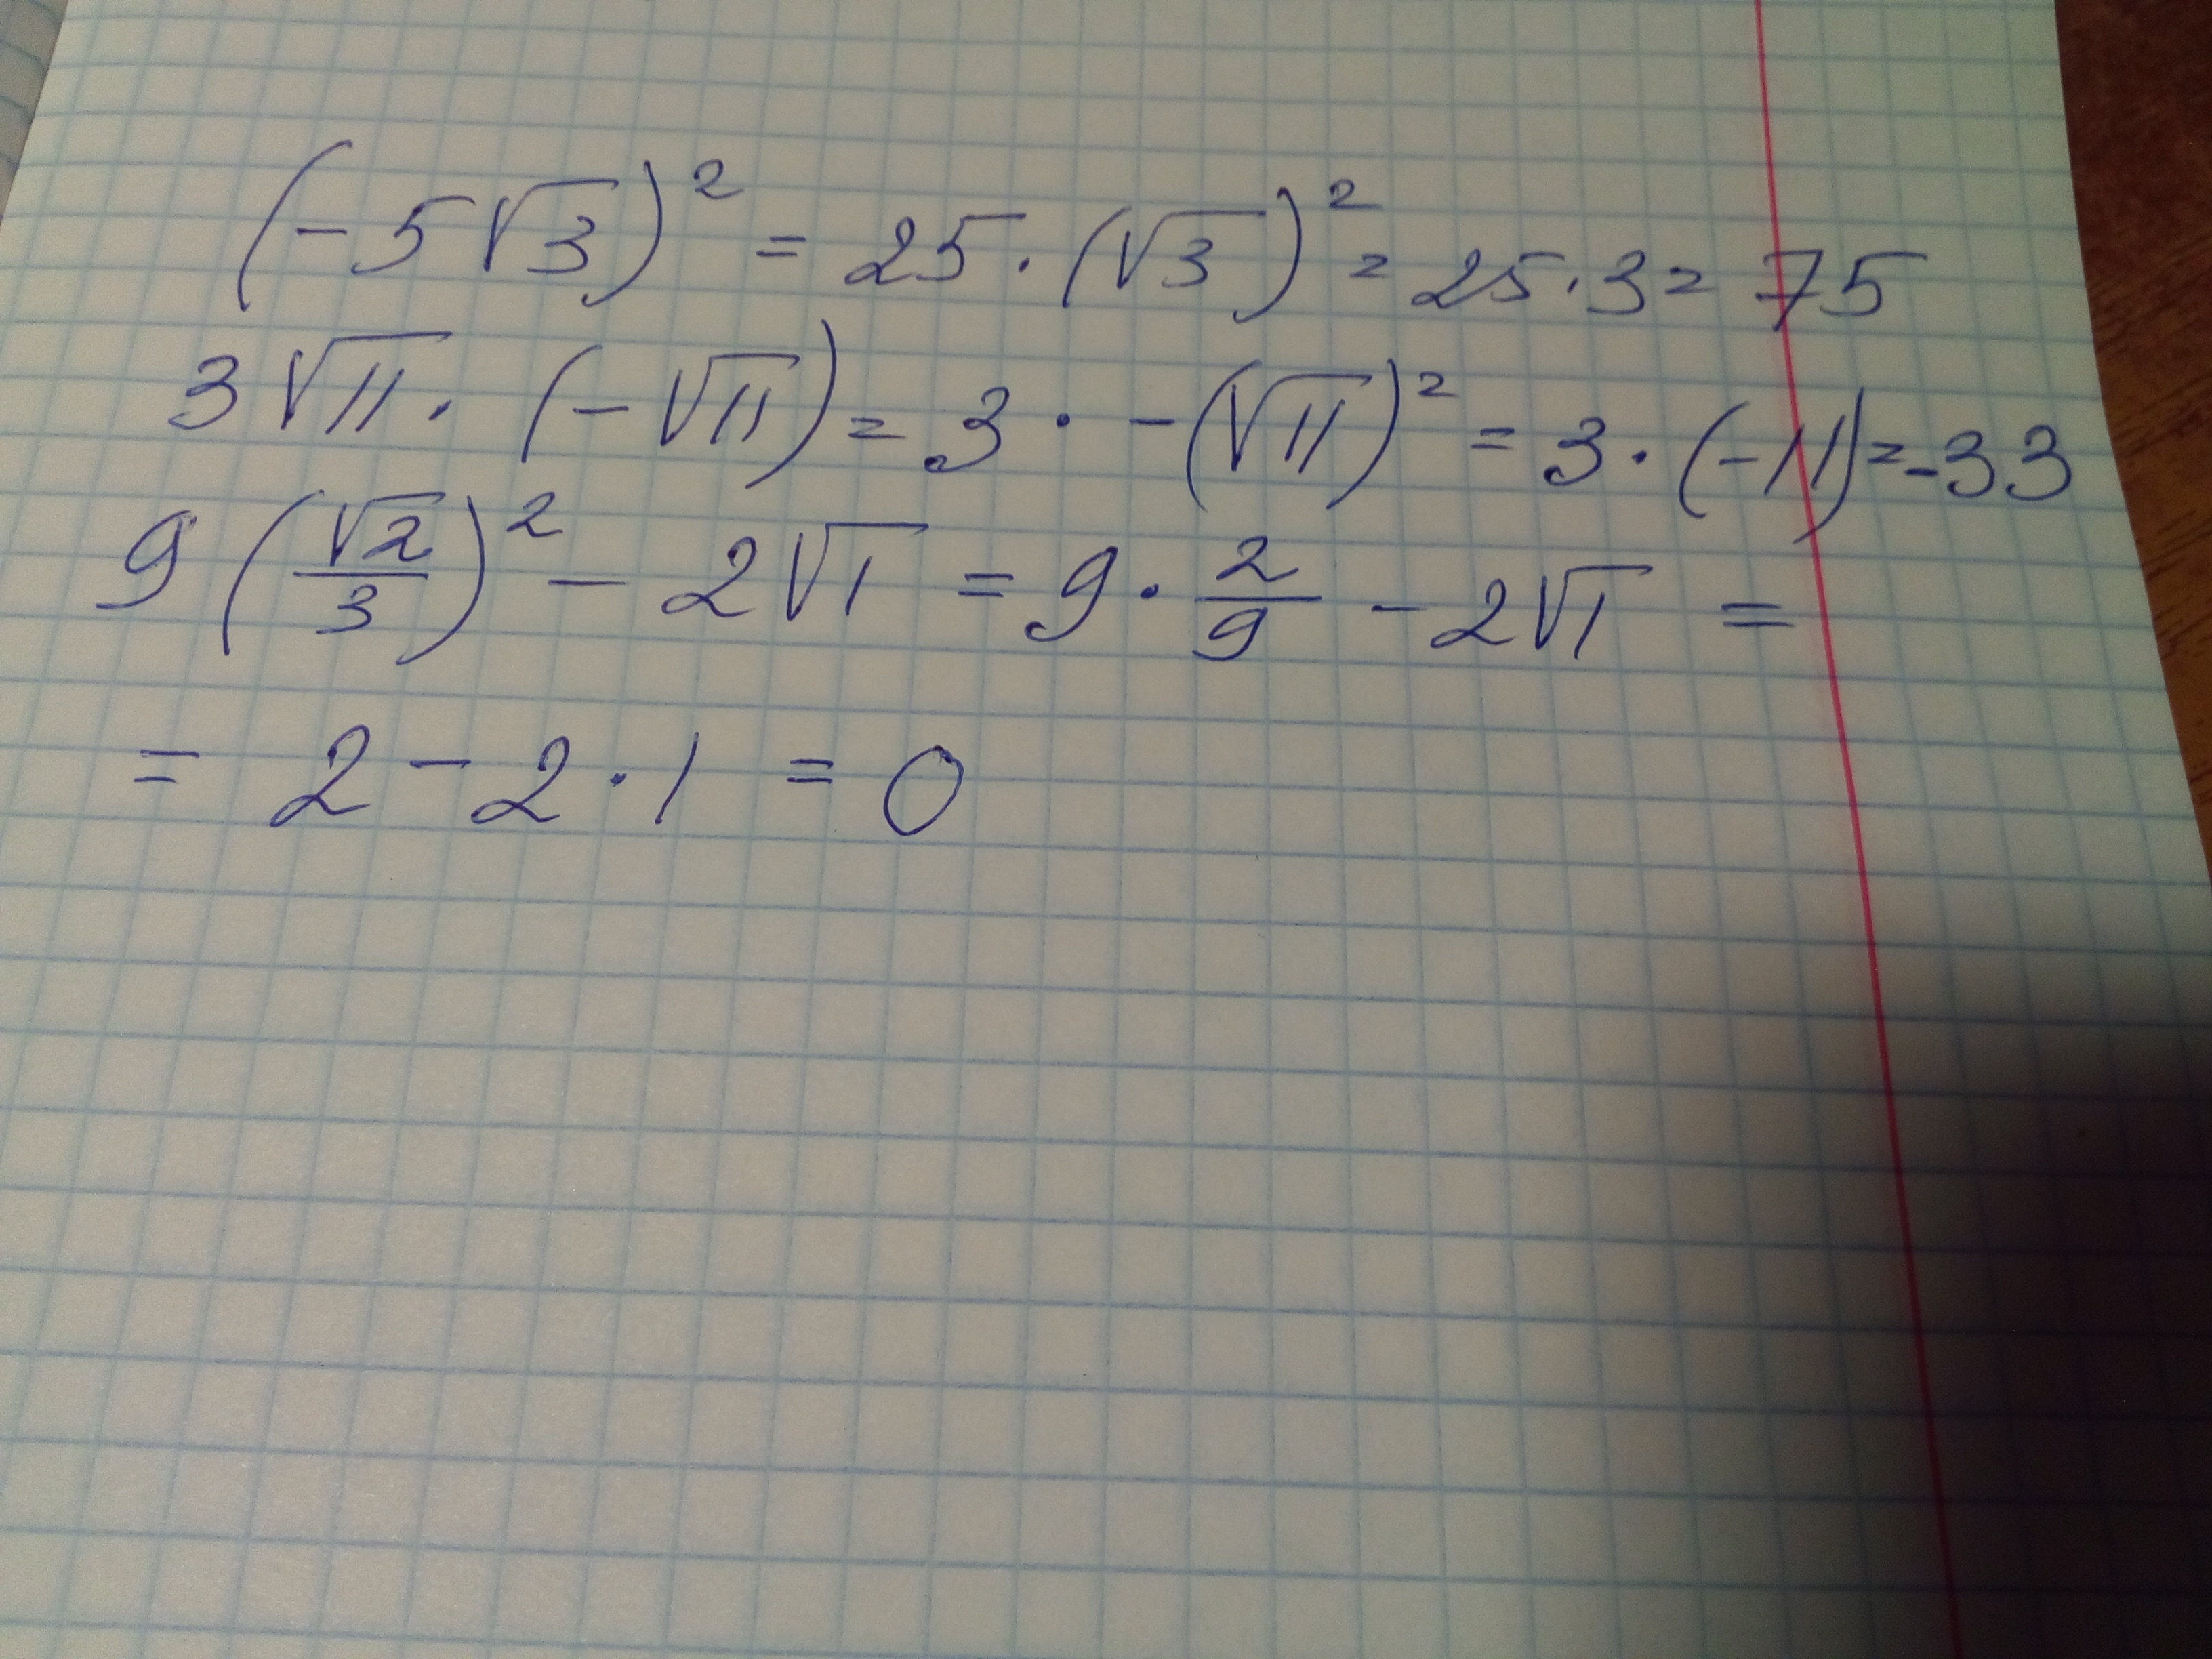 (-5√3)² = 25·(√3)² = 25·3= 75
3√11·(-√11)=3·-(√11)² = 3·(-11)=-33
9(√2/3)² - 2√1 = 9·2/9 - 2√1 =
= 2-2·1 = 0